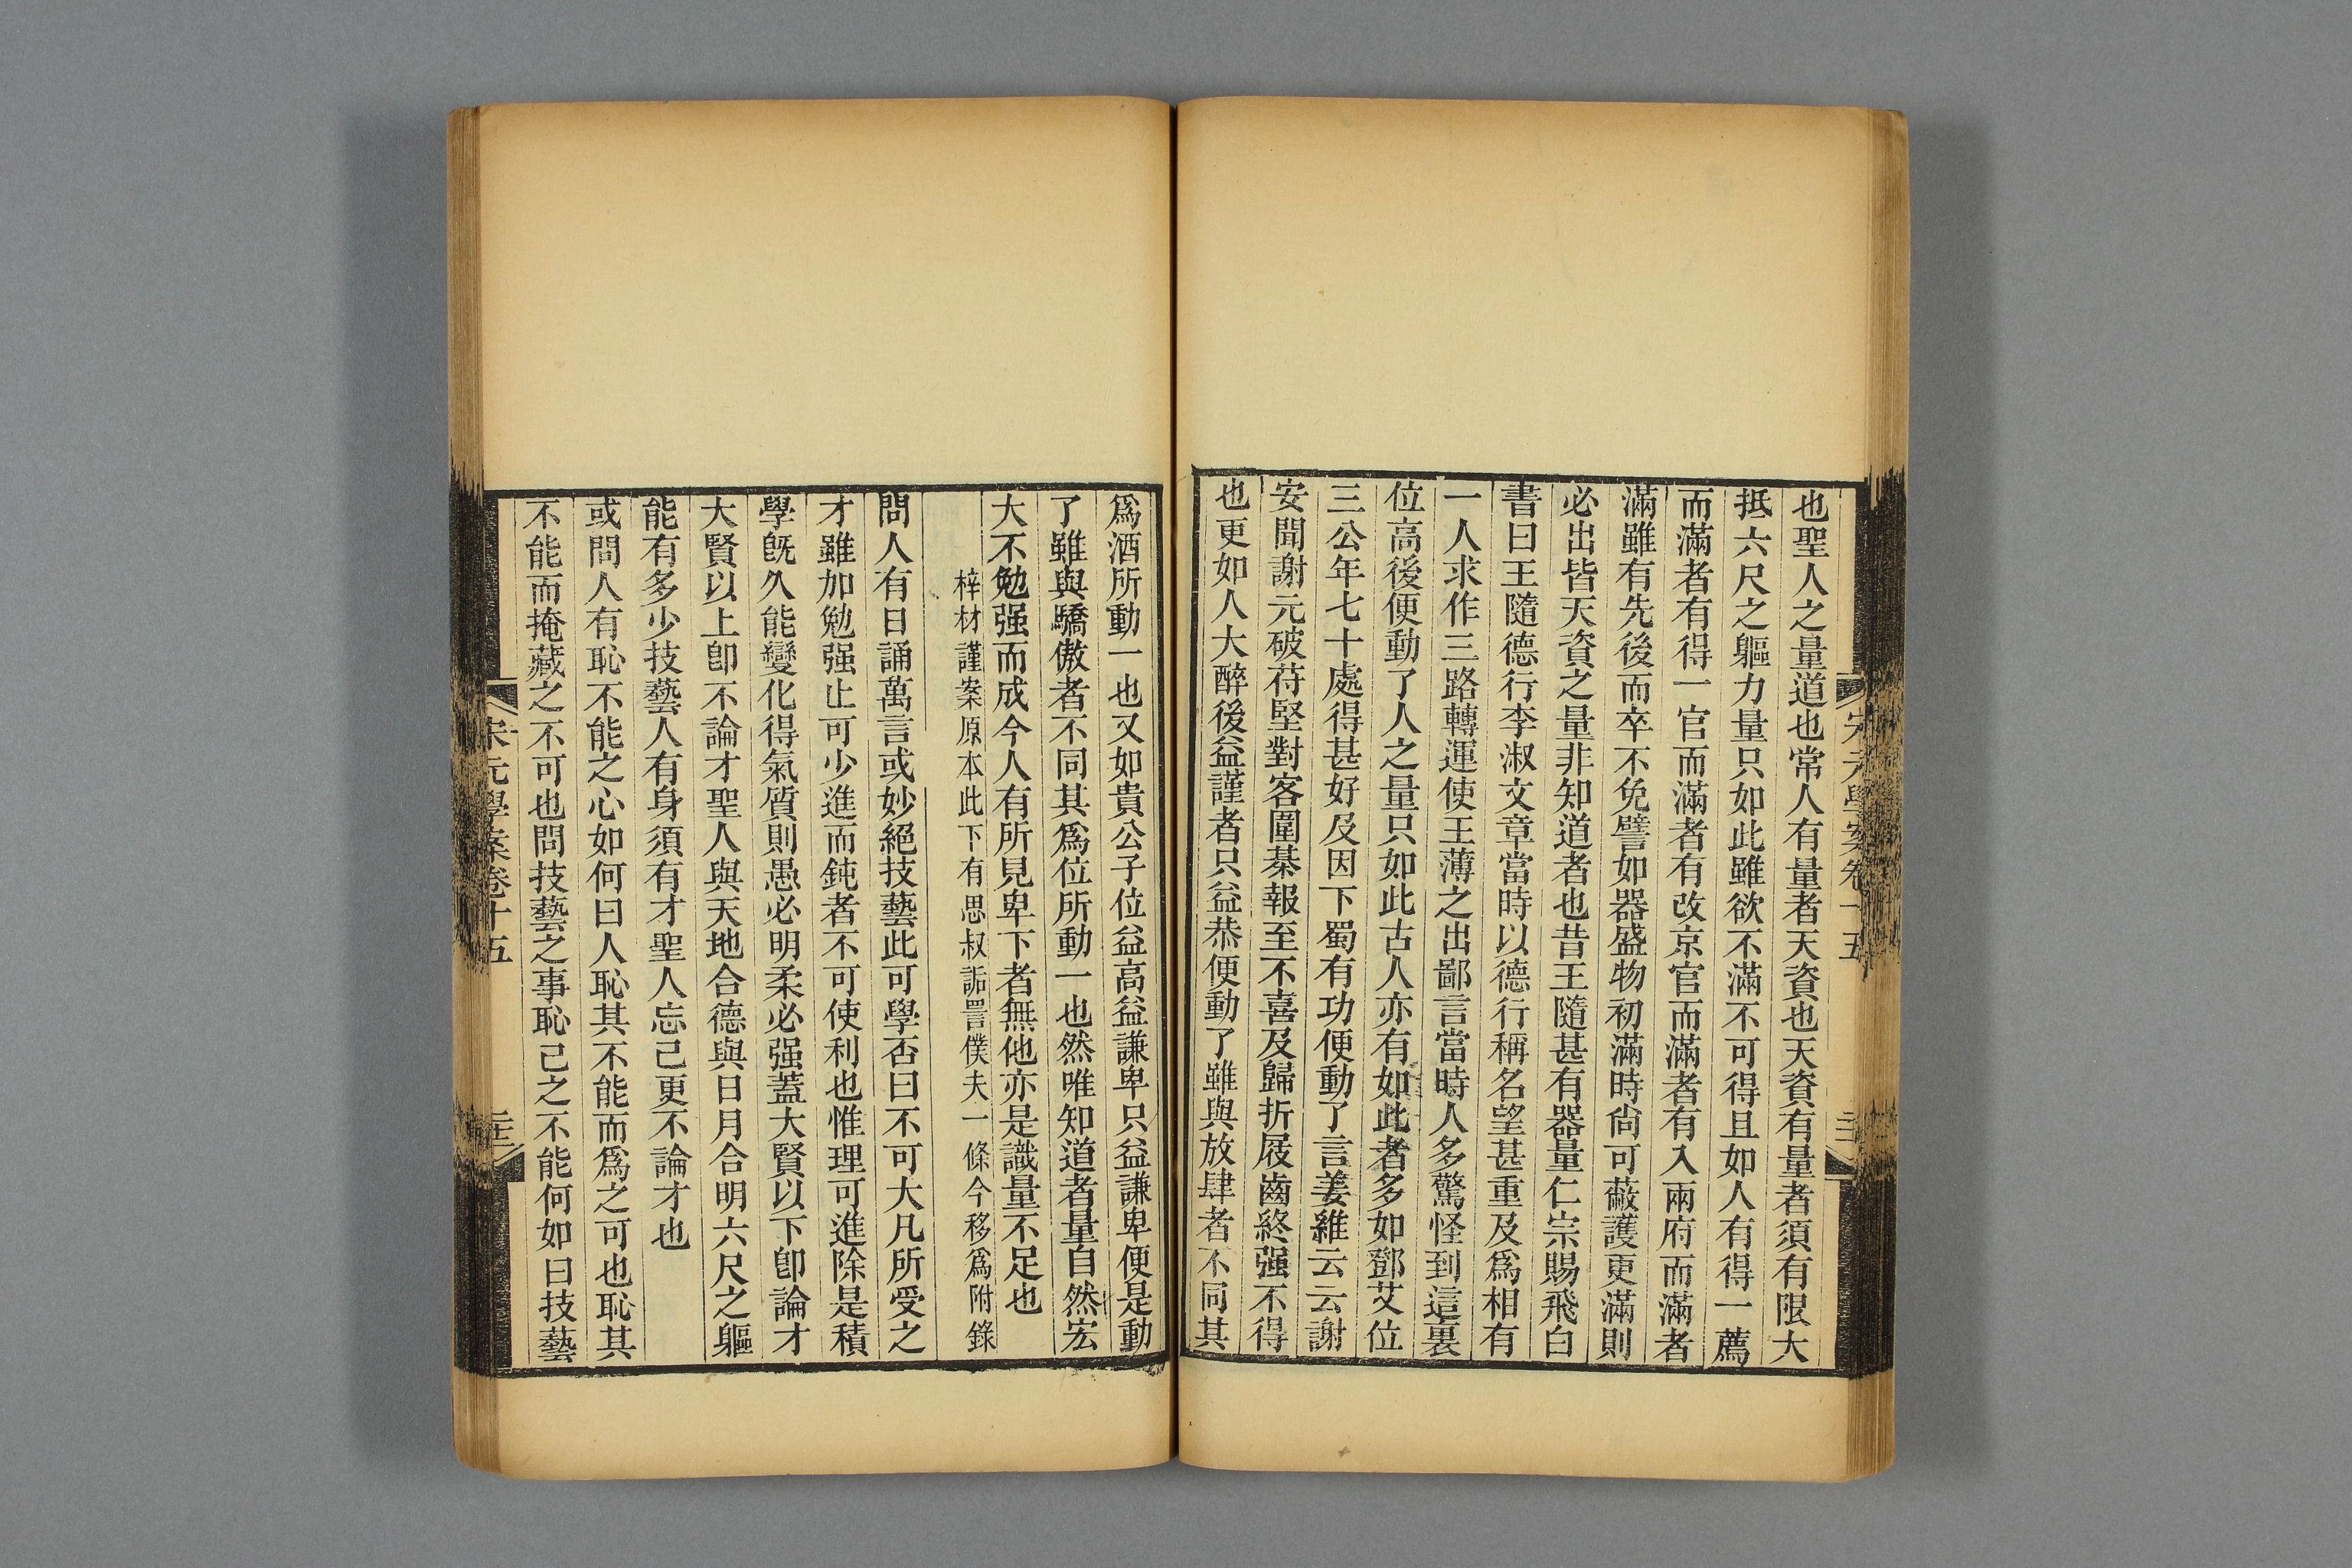 也聖人之量道也常人有量者天資也天資有量者須有限大
抵六尺之軀力量只如此雖欲不滿不可得且如人有得一薦
而滿者有得一官而滿者有改京官而滿者有入兩府而滿者
滿雖有先後而卒不免譬如器盛物初滿時尙可蔽護更滿則
必出皆天資之量非知道者也昔王隨甚有器量仁宗賜飛白
書曰王隨德行李淑文章當時以德行稱名望甚重及爲相有
一人求作三路轉運使王薄之出鄙言當時人多驚怪到這裏
位高後便動了人之量只如此古人亦有如此者多如鄧艾位
三公年七十處得甚好及因下蜀有功便動了言姜維云云謝
安聞謝元破苻堅對客圍棊報至不喜及歸折屐齒終强不得
也更如人大醉後益謹者只益恭便動了雖與放肆者不同其
爲酒所動一也又如貴公子位益高益謙卑只益謙卑便是動
了雖與驕傲者不同其爲位所動一也然唯知道者量自然宏
大不勉强而成今人有所見卑下者無他亦是識量不足也
梓材謹案原本此下有思叔詬詈僕夫一條今移爲附錄
問人有日誦萬言或妙絕技藝此可學否曰不可大凡所受之
才雖加勉强止可少進而鈍者不可使利也惟理可進除是積
學旣久能變化得氣質則愚必明柔必强蓋大賢以下卽論才
大賢以上卽不論才聖人與天地合德與日月合明六尺之軀
能有多少技藝人有身須有才聖人忘己更不論才也
或問人有恥不能之心如何曰人恥其不能而爲之可也恥其
不能而掩藏之不可也問技藝之事恥己之不能何如曰技藝
宋元學案卷十五